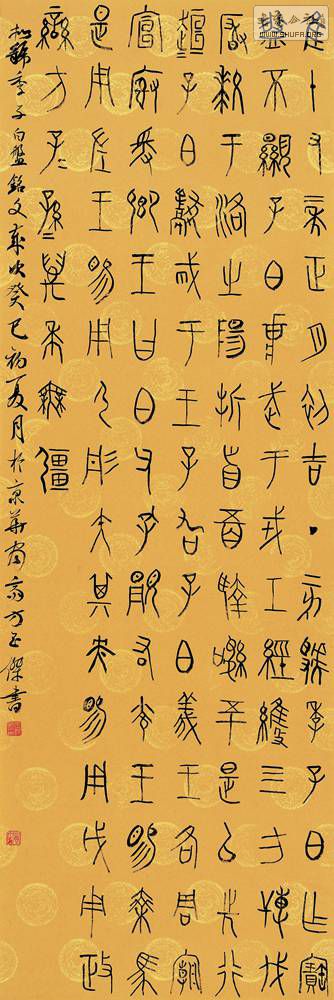 隹十又二年正月初吉丁亥虢季子白乍寶
盤不顯子白壯武于戎工經維四方搏伐
𤞤于洛之陽折首五百執訊五十是以先行
桓桓子白獻馘于王王孔加子白義王各周廟
宣榭爰鄉王曰白父孔顯又光王睗乘馬
是用左王睗用弓彤矢其央睗用戉用政
蠻方子子孫孫萬年無疆
虢季子白盤銘文歲次癸巳初夏月於京華寓齋方正傑書
WWW.SHUFR.ORG